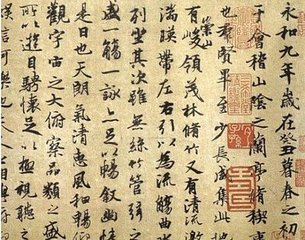 永和九年歲在癸丑暮春之初
于會稽山陰之蘭亭脩禊事
也羣賢畢至少長咸集此地
有崇山峻領茂林脩竹又有清流激
湍暎帶左右引以為流觴曲水
列坐其次雖無絲竹管弦之
盛一觴一詠亦足以暢敘幽情
是日也天朗氣清惠風和暢仰
觀宇宙之大俯察品類之盛
所以遊目騁懷足以極視聽之
娛信可樂也夫